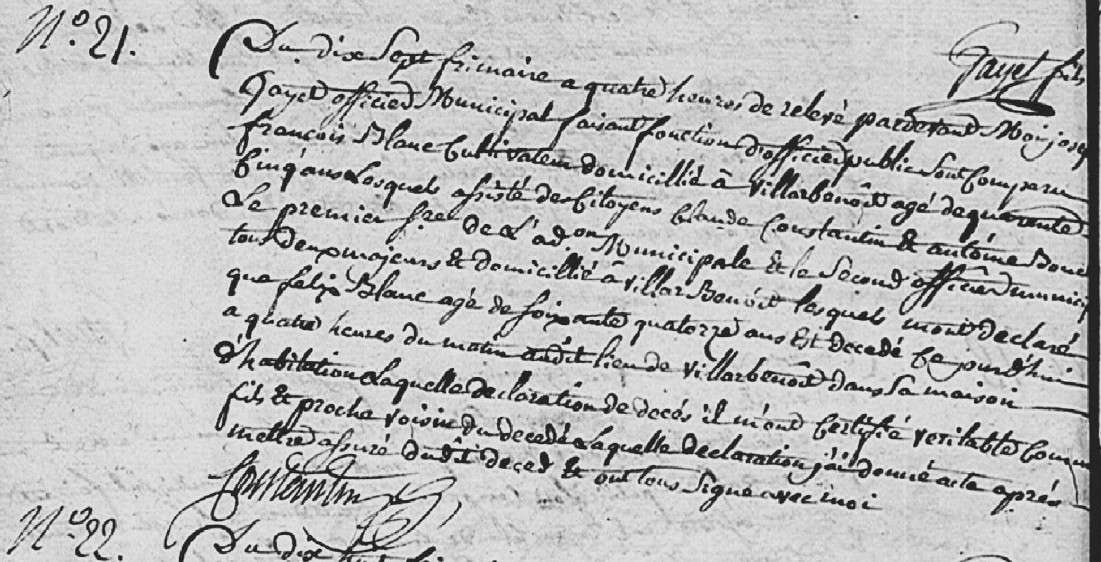 N.º 21.
Gayet fils
Du dix Sept frimaire a quatre heures de relevé pardevant Moi joseph
Gayet officier Municipal faisant fonction d'officier public Sont Comparu
françois Blanc Cultivateur domicillié â villarbenoît agé de quarante
Cinq ans Lesquels assisté des Citoyens Claude Constantin & antoine
Le premier de L'adon Municipale & le Second officier municip
tous deux majeurs & domicillié â villarBenoit lesquels m'ont declaré
que felix Blanc agé de Soixante quatorze ans est decedé Ce jourd'hui
a quatre heures du matin audit lieu de villarbenoît dans Sa maison
d'habitation Laquelle declaration de decés il m'ont Certifié veritable Comme
fils & proche voisin du decedé a laquelle declaration j'ai donné acte aprés
mettre assuré dudit deced & ont tous Signé avec moi
Constantin
N.º 22.
Du dix